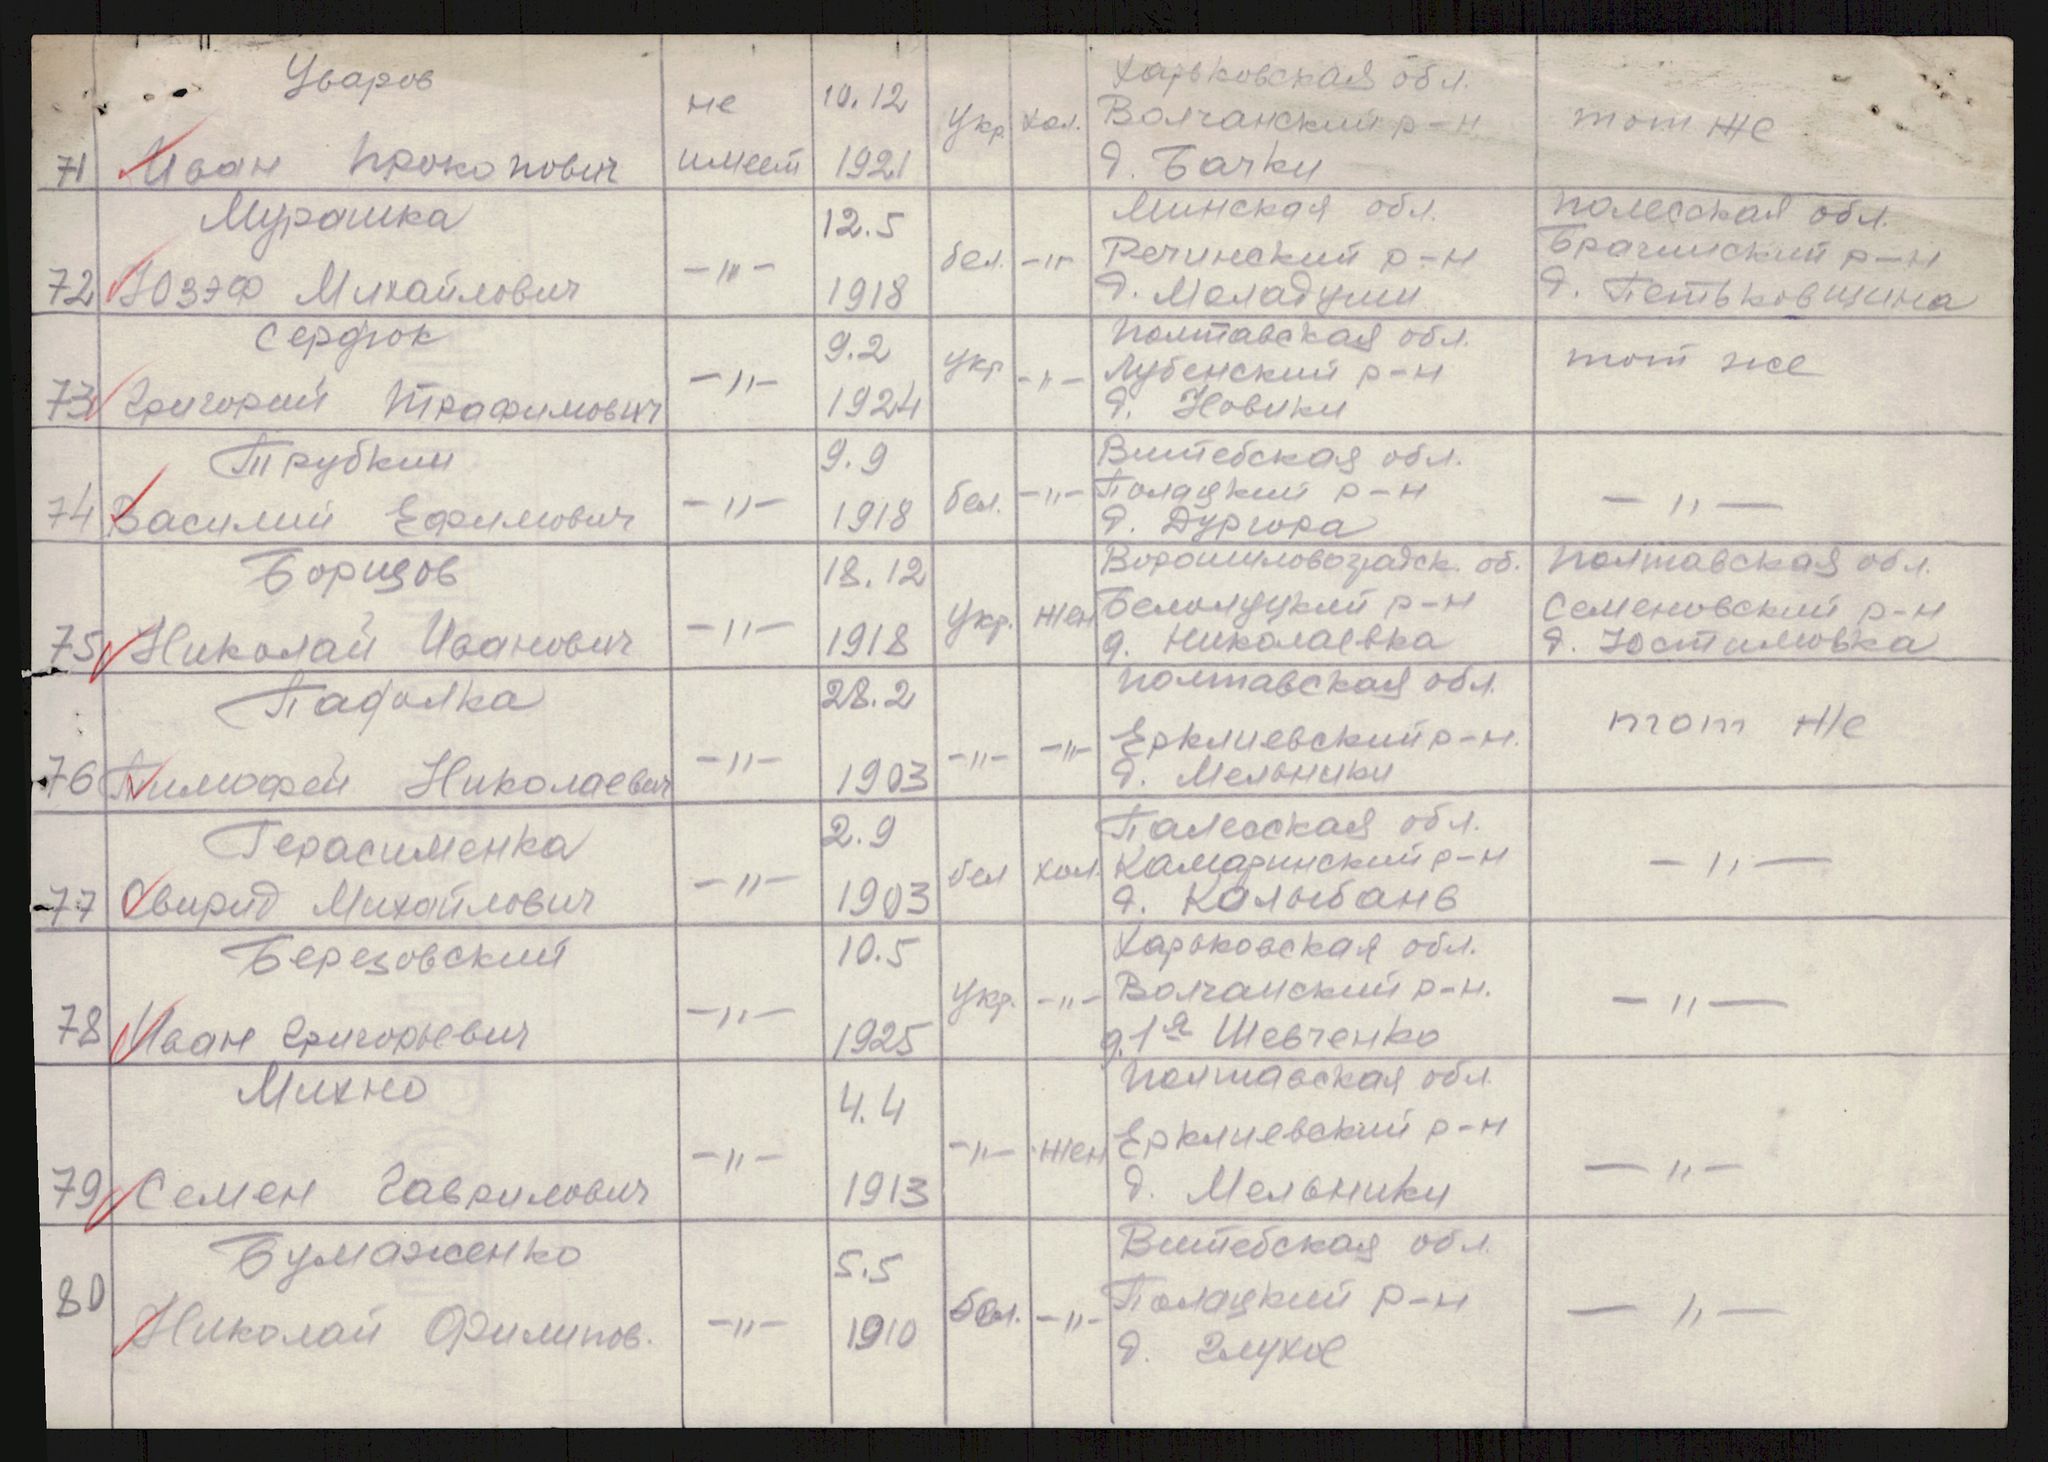 Уваров
не
10.12
Укр.
хол.
Харьковская обл.
Волчанский р-н
тот же
71
Иван Прокопович
имеет
1921
д. Бачки
Мурашка
12.5
Минская обл.
Полесская обл.
72
Юзэф Михайлович
-"-
1918
бел.
-"-
Речинский р-н
д. Меладуши
Брагинский р-н
д. Петьковщина
Сердюк
9.2
Полтавская обл.
тот же
73
Григорий Трафимович
-"-
1924
укр
-"-
Лубенский р-н
д. Новики
Трубкин
9.9
Витебская обл.
74
Василий Ефимович
-"-
1918
бел.
-"-
Полацкий р-н
д. Дургора
-"-
Борщов
18.12
Ворошиловоградск. об.
Полтавская обл.
75
Николай Иванович
-"-
1918
Укр.
жен
Белолуцкий р-н
д. Николаевка
Семеновский р-н
д. Юстимовка
Падолка
28.2
Полтавская обл.
тот же
76
Тимофей Николаевич
-"-
1903
-"-
-"-
Ерклиевский р-н.
д. Мельники
Герасименка
2.9
Палесская обл.
77
Свирид Михайлович
-"-
1903
бел
хол.
Камаринский р-н
д. Калыбань
-"-
Березовский
10.5
Харьковская обл.
78
Иван Григорьевич
-"-
1925
Укр.
-"-
Волчанский р-н.
д. 1я Шевченко
-"-
Михно
4.4
Полтавская обл.
79
Семен Гаврилович
-"-
1913
-"-
жен
Ерклиевский р-н
д. Мельники
-"-
Бумаженко
5.5
Витебская обл.
80
Николай Филипов.
-"-
1910
бел.
-"-
Полацкий р-н
д. Глухое
-"-